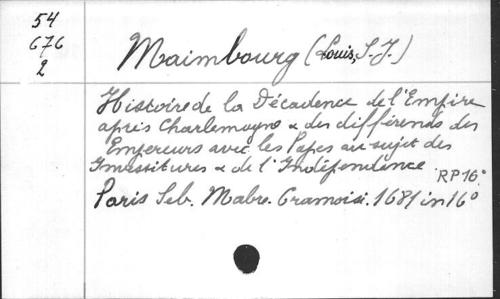 54
676
2
Maimbourg (Louis, S.J.)
Histoire de la Décadence de l'Empire
après Charlemagne & des différends des
Empereurs avec les Papes au sujet des
Investitures & de l'Indépendance
RP16°
Paris Seb. Mabre. Cramoisi. 1681 in 16°